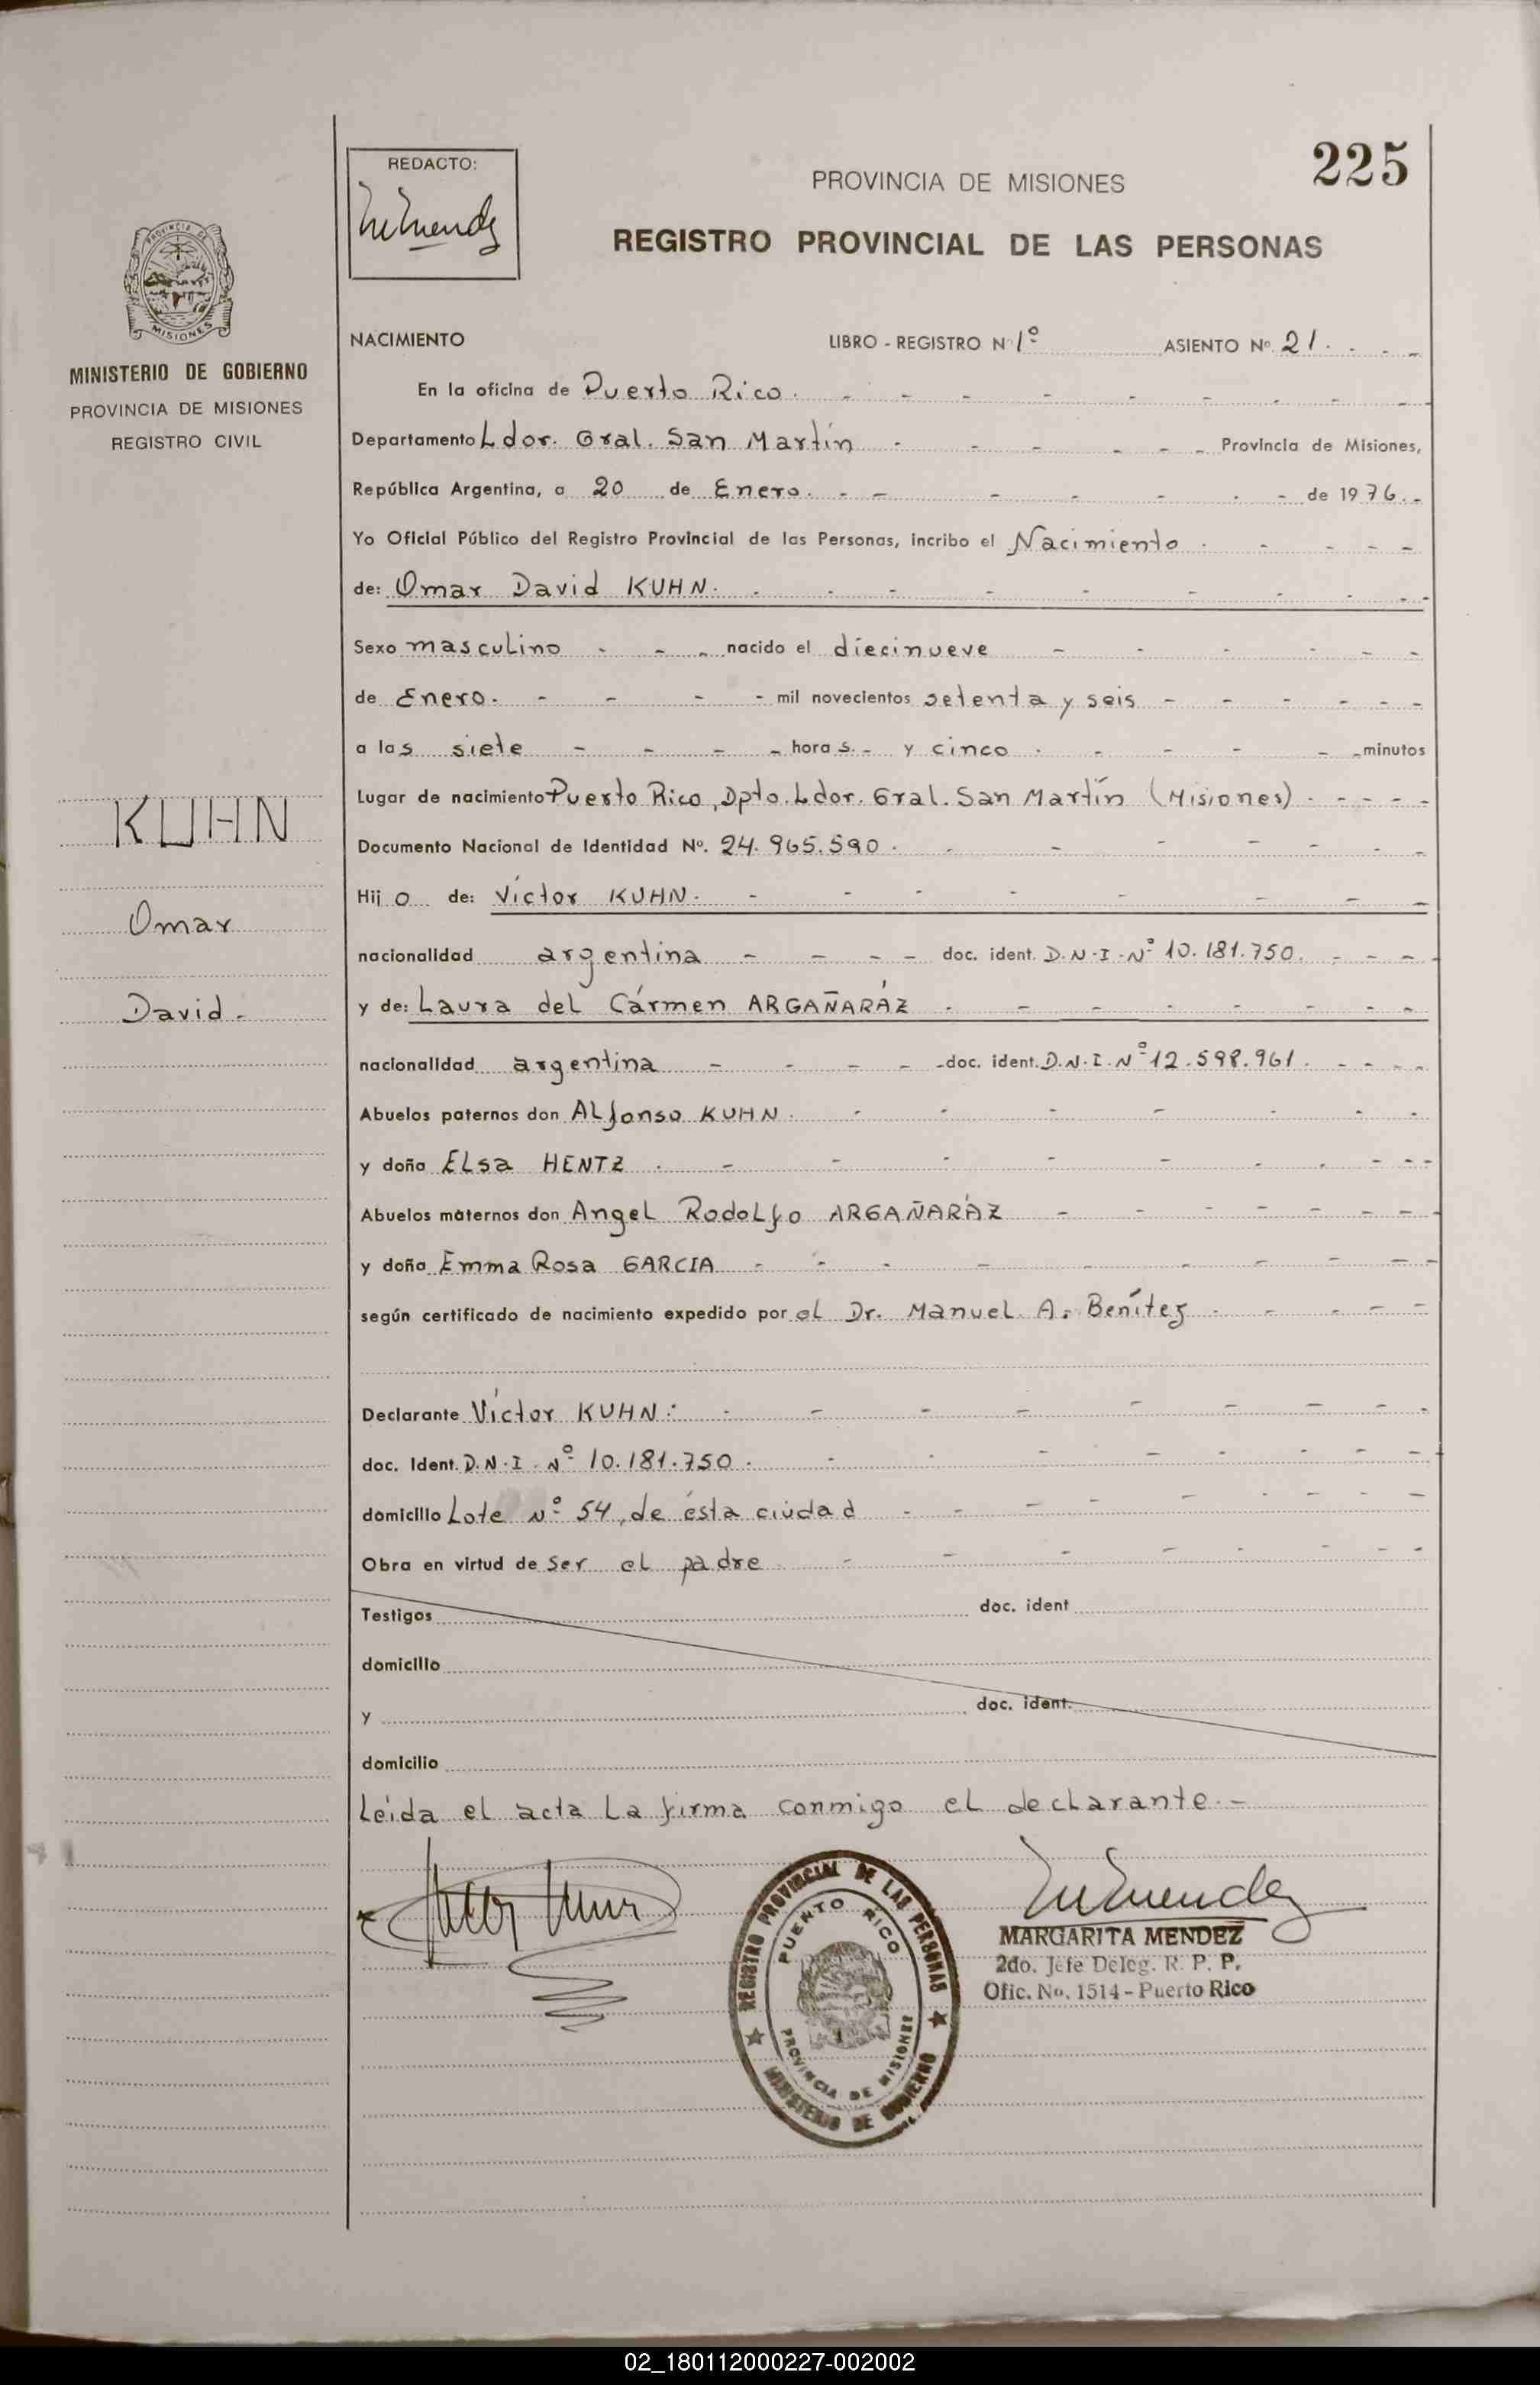 225
REDACTO:
PROVINCIA DE MISIONES
REGISTRO PROVINCIAL DE LAS PERSONAS
PROVINCIA DE
MISIONES
MINISTERIO DE GOBIERNO
PROVINCIA DE MISIONES
REGISTRO CIVIL
KUHN
Omar
David.-
NACIMIENTO LIBRO - REGISTRO N 1º ASIENTO Nº 21. - - -
En la oficina de Puerto Rico. - - - - - - - - -
Departamento Ldor. Gral. San Martín - - - - - - Provincia de Misiones,
República Argentina, a 20 de Enero. - - - - - - - de 1976.-
Yo Oficial Público del Registro Provincial de las Personas, incribo el Nacimiento . - - - -
de: Omar David KUHN. - - - - - - - - -
Sexo masculino - - - nacido el diecinueve - - - - - -
de Enero. - - - - mil novecientos setenta y seis - - - - - -
a las siete - - - - horas.- y cinco . - - - - minutos
Lugar de nacimiento Puerto Rico, Dpto. Ldor. Gral. San Martín (Misiones) . - - - -
Documento Nacional de Identidad Nº. 24.965.590 . - - - - - - -
Hijo de: Víctor KUHN. - - - - - - - -
nacionalidad argentina - - - - doc. ident. D.N.I.Nº 10.181.750. - - - -
y de: Laura del Cármen ARGAÑARÁZ . - - - - - - -
nacionalidad argentina - - - - - doc. ident. D.N.I.Nº 12.598.961. - - - -
Abuelos paternos don ALfonso KUHN. - - - - - - -
y doña ELsa HENTZ . - - - - - - - - -
Abuelos maternos don Angel RodoLfo ARGAÑARÁZ - - - - - - -
y doña Emma Rosa GARCIA - - - - - - - - -
según certificado de nacimiento expedido por el Dr. Manuel A. Benítez . - - - -
Declarante Víctor KUHN: - - - - - - - - -
doc. Ident. D.N.I. Nº 10.181.750. - - - - - - - -
domicilio Lote Nº 54, de ésta ciudad - - - - - - - -
Obra en virtud de ser el padre - - - - - - - -
Testigos doc. ident
domicilio
y doc. ident.
domicilio
Leída el acta La firma conmigo el declarante.-
REGISTRO PROVINCIAL DE LAS PERSONAS
PUERTO RICO
PROVINCIA DE MISIONES
MINISTERIO DE GOBIERNO
MARGARITA MENDEZ
2do. Jefe Deleg. R. P. P.
Ofic. No. 1514 - Puerto Rico
02_180112000227-002002